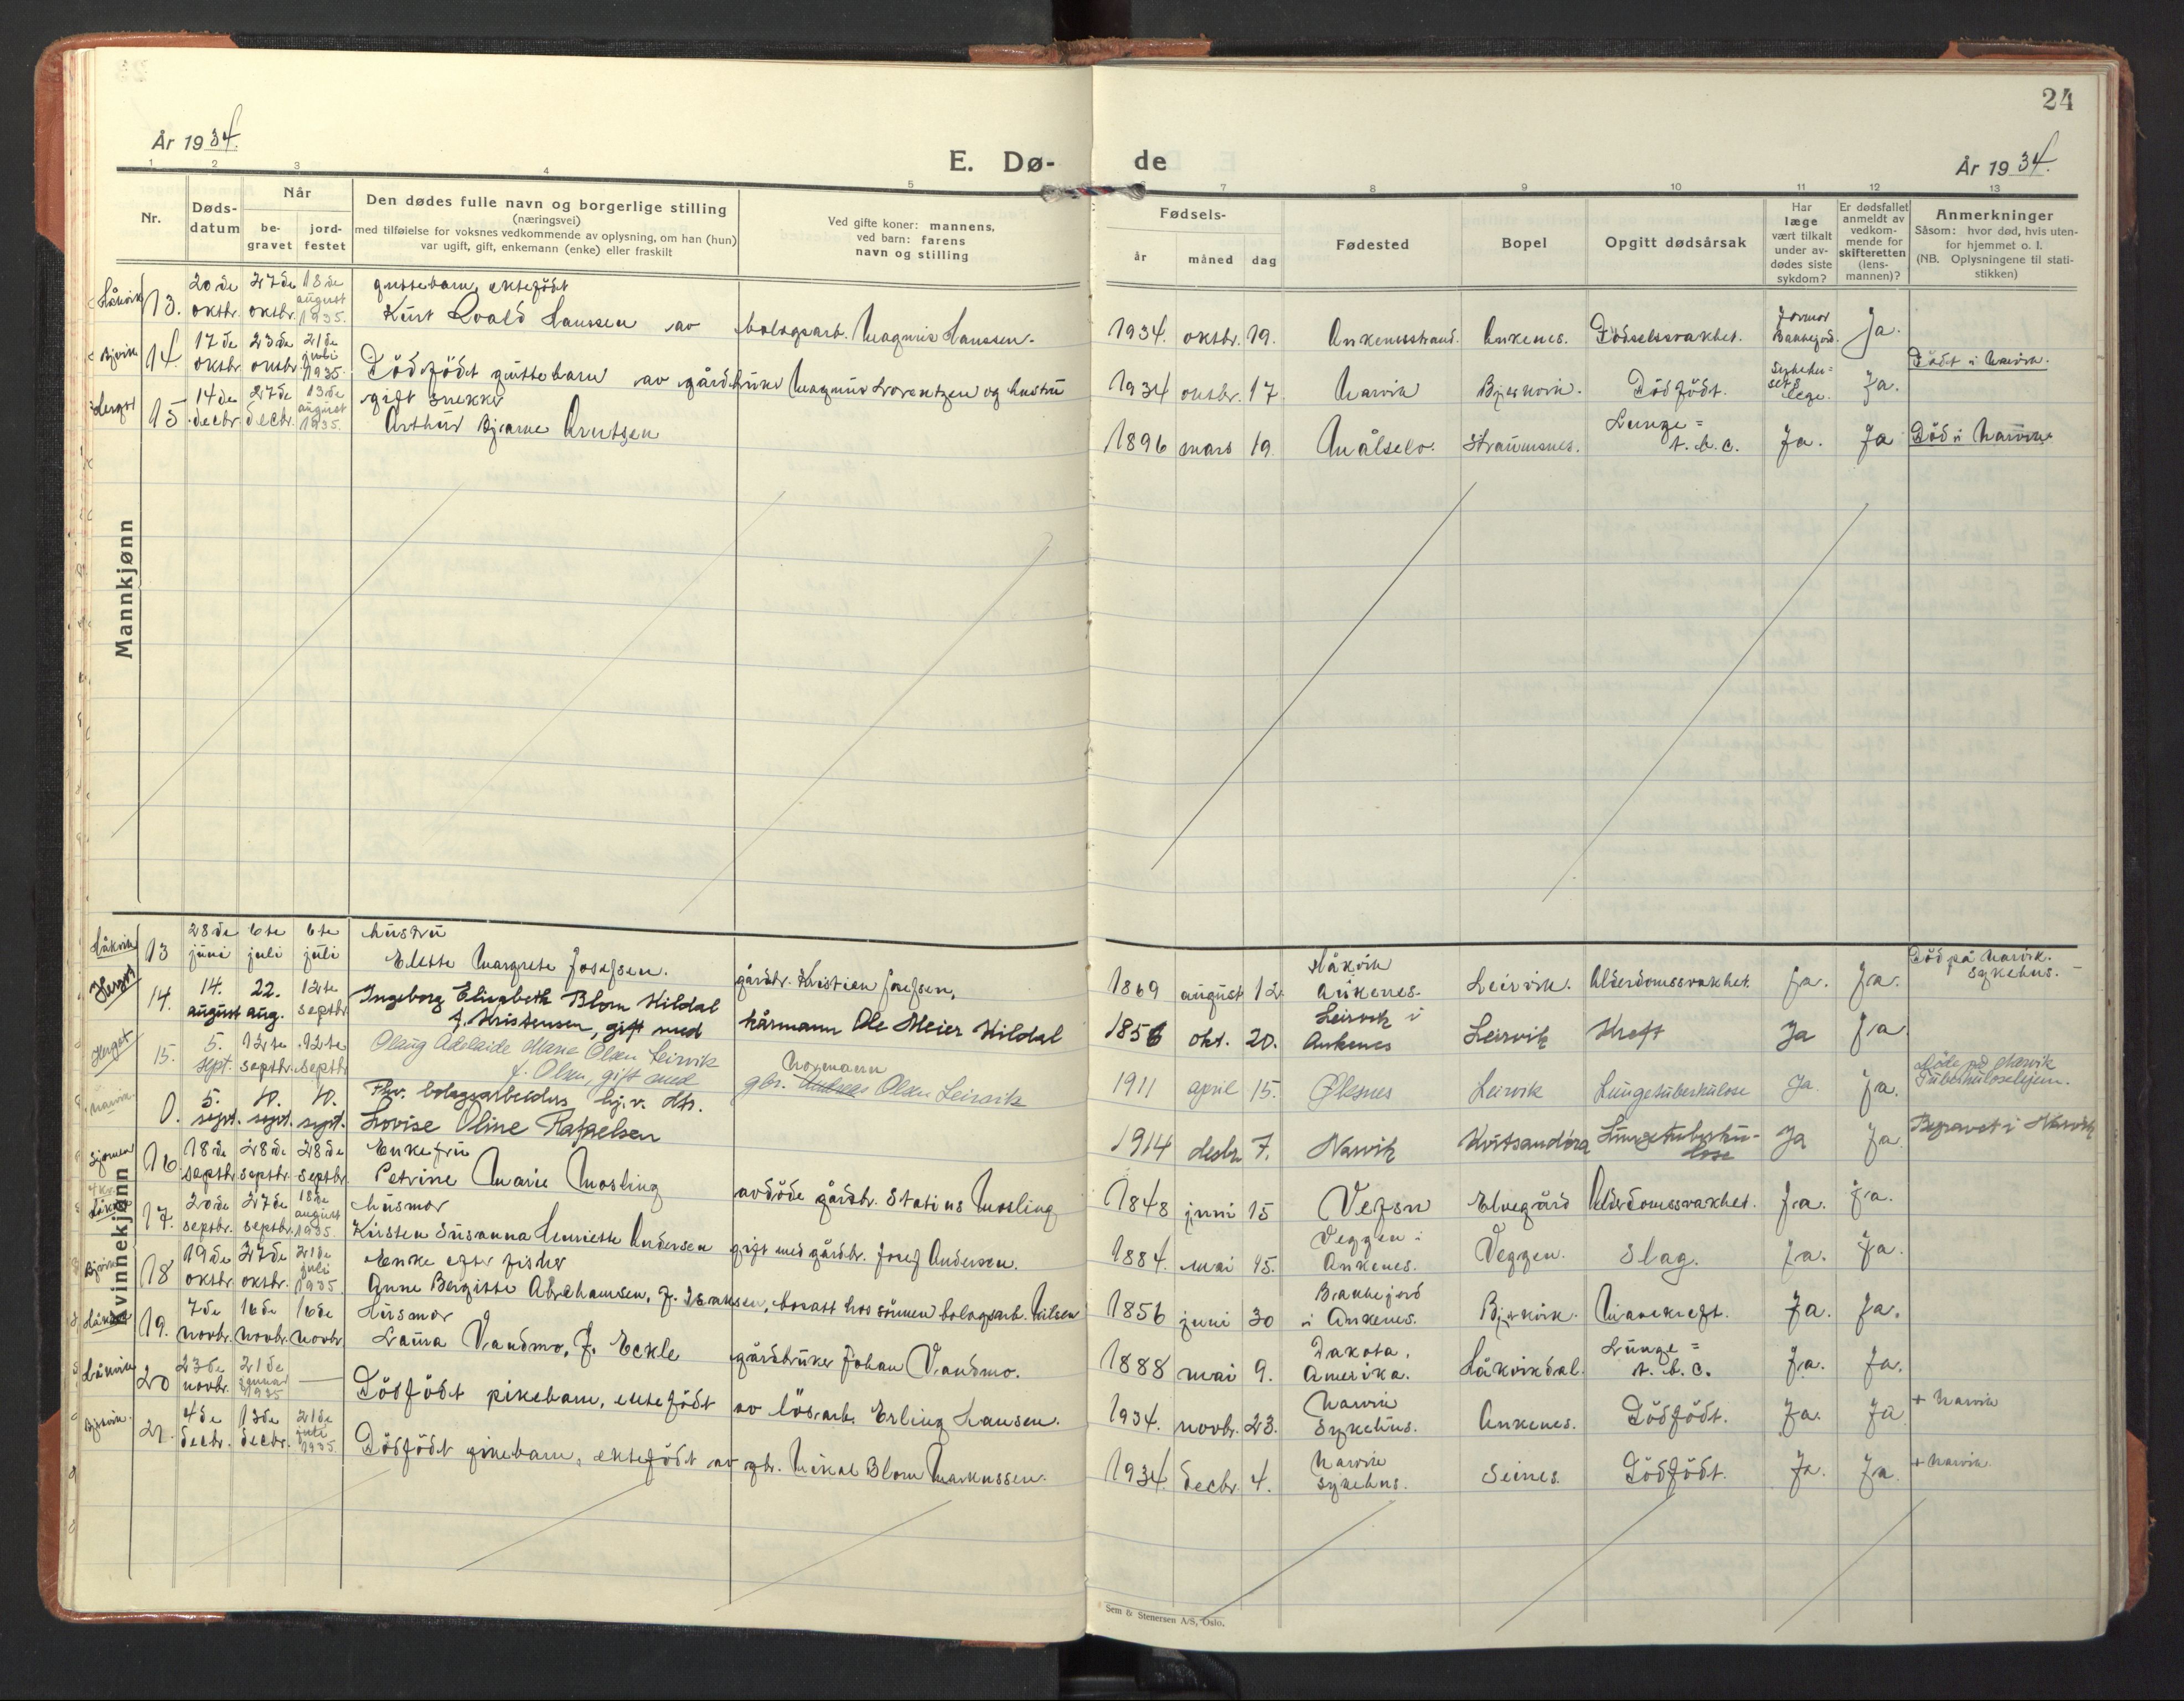 24
År 1934.
E. Dø-
de
År 1934.
1 2 3 4 5 6 7 8 9 10 11 12 13
Nr.
Døds-
datum
Når
be-
gravet
jord-
festet
Den dødes fulle navn og borgerlige stilling
(næringsvei)
med tilføielse for voksnes vedkommende av oplysning, om han (hun)
var ugift, gift, enkemann (enke) eller fraskilt
Ved gifte koner: mannens,
ved barn: farens
navn og stilling
Fødsels-
år måned dag
Fødested
Bopel
Opgitt dødsårsak
Har
læge
vært tilkalt
under av-
dødes siste
sykdom?
Er dødsfallet
anmeldt av
vedkom-
mende for
skifteretten
(lens-
mannen)?
Anmerkninger
Såsom: hvor død, hvis uten-
for hjemmet o. l.
(NB. Oplysningene til stati-
stikken)
Mannkjønn
Håkvik 13. 20de oktbr. 27de oktbr. 18de august 1935. guttebarn, ektefödt
Kurt Roald Hanssen av bolagsarb. Magnus Hanssen. 1934. oktbr. 19. Ankenesstrand. Ankenes. Födselssvakhet. Jormor Ja.
Bjerkvik 14. 17de oktbr. 23de oktbr. 21de juli 1935. Dödfödt guttebarn av gårdbruker Magnus Lorentzen og hustru 1934 oktbr. 17. Narvik Bjerkvik. Dödfödt. Ja. Födt i Narvik.
Herget 15 14de decbr. 27de decbr. 13de august 1935. gift snekker
Arthur Bjarne Arntsen 1896 mars 19. Målselv. Straumsnes. Lunge=
t.b.c. Ja. Ja Död i Narvik.
Kvinnekjønn
Håkvik 13 28de juni 6te juli 6te juli hustru
Elette Margrete Josefsen. gårdbr. Kristien Josefsen. 1869 august 12. Håkvik
Ankenes. Leirvik. Alderdomssvakhet. Ja. Ja. Död på Narvik
sykehus.
Herget 14. 14. august 22. aug. 12te septbr. Ingeborg Elisabeth Blom Hildal
f. Kristensen, gift med kårmann Ole Meier Hildal 1856 okt. 20. Leirvik i
Ankenes Leirvik Kreft Ja Ja
Herget 15. 5. sept. 12te septbr. 12te septbr. Olaug Adelaide Marie Olsen Leirvik
f. Olsen, gift med gbr. Normann Olsen Leirvik 1911 april 15. Leirvik Lungetuberkulose Ja. Ja. Döde på Narvik
Tuberkulosehjem.
Narvik. 0. 5. sept. 10. sept. 10. sept. Fhv. bolagsarbeiders hj.v. dtr.
Lovise Oline Rafaelsen 1914 desbr. 7. Narvik Kvitsandöra Lungetuberku-
lose Ja Ja. Begravet i Narvik
16 18de septbr. 28de septbr. 28de septbr. Enkefru
Petrine Marie Mosling avdöde gårdbr. Statius Mosling 1848 juni 15 Vefsn Elvegård Alderdomssvakhet. Ja. Ja.
Håkvik 17. 20de septbr. 27de septbr. 18de august 1935. Husmor
Kirsten Susanna Henriette Andersen gift med gårdbr. Josef Andersen. 1884. mai 15. Veggen i
Ankenes. Veggen. Slag. Ja. Ja.
Bjerkvik 18 19de oktbr. 27de oktbr. 21de juli 1935. Enke efter fisker
Anne Bergitte Abrahamsen, f. Isaksen, bosatt hos sönnen bolagsarb. Nilsen 1856 juni 30 i Ankenes. Bjerkvik. Mavekreft. Ja. Ja.
Håkvik 19. 7de novbr. 16de novbr. 16de novbr. Husmor
Laura Vandmo, f. Eckle gårdbruker Johan Vandmo. 1888 mai 9. Dakota,
Amerika. Håkvikdal. Lunge=
t.b.c. Ja. Ja.
Håkvik 20 23de novbr. 21de januar 1935 — Dödfödt pikebarn, ektefödt av lösarb. Erling Hansen. 1934. novbr. 23. Narvik
Sykehus. Ankenes. Dödfödt. Ja. Ja + Narvik
Bjerkvik. 21. 4de decbr. 13de decbr. 21de juli 1935. Dödfödt pikebarn, ektefödt av gbr. Mikal Blom Markussen. 1934 decbr. 4. Narvik
sykehus. Seines. Dödfödt. Ja. Ja + Narvik
Sem & Stenersen A/S, Oslo.